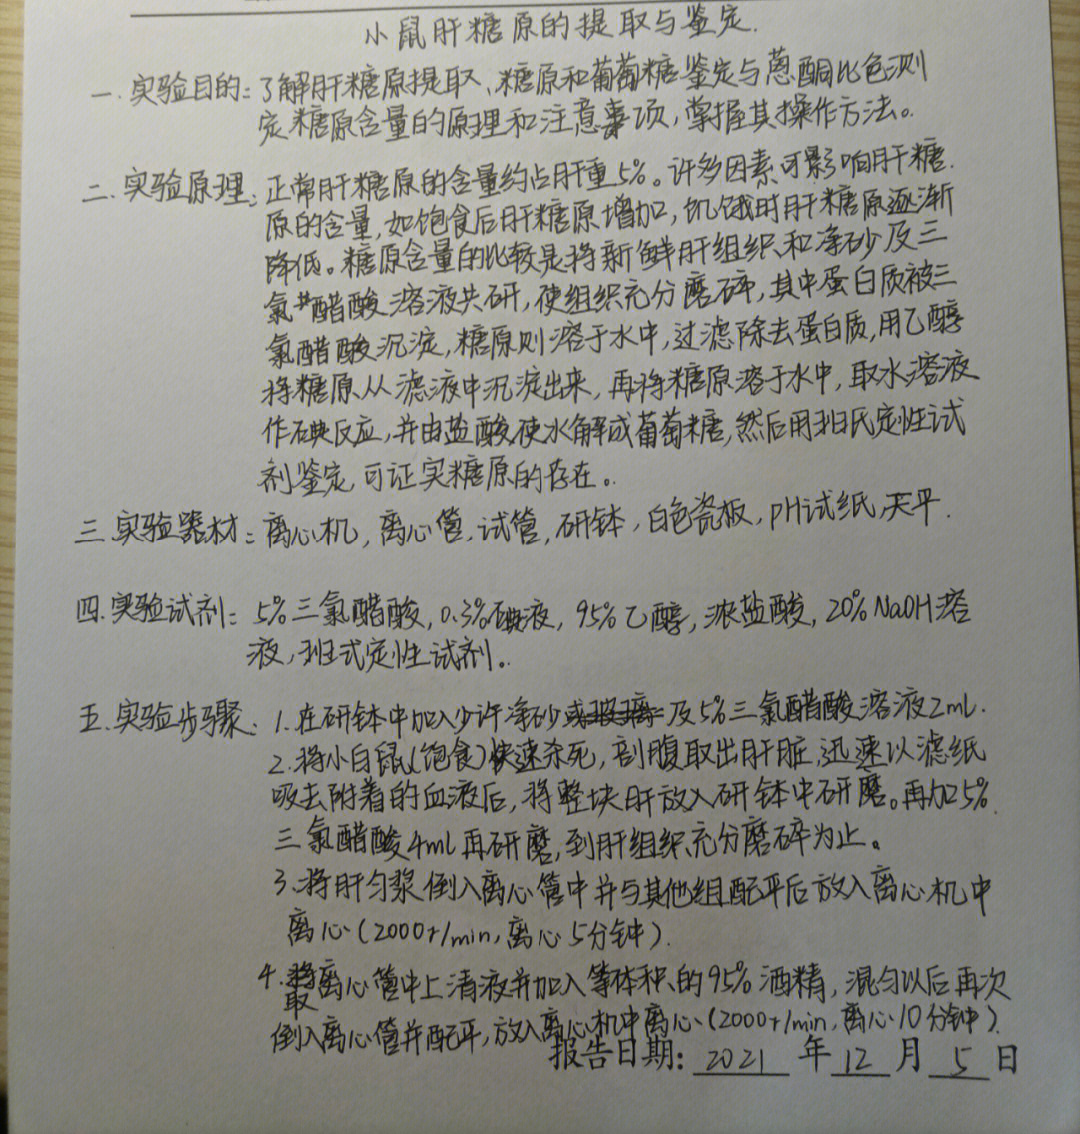 小鼠肝糖原的提取与鉴定.
一.实验目的:了解肝糖原提取、糖原和葡萄糖鉴定与蒽酮比色测
定糖原含量的原理和注意事项,掌握其操作方法。
二.实验原理:正常肝糖原的含量约占肝重5%。许多因素可影响肝糖
原的含量,如饱食后肝糖原增加,饥饿时肝糖原逐渐
降低。糖原含量的比较是将新鲜肝组织和净砂及三
氯醋酸溶液共研,使组织充分磨碎,其中蛋白质被三
氯醋酸沉淀,糖原则溶于水中,过滤除去蛋白质,用乙醇
将糖原从滤液中沉淀出来,再将糖原溶于水中,取水溶液
作碘反应,并由盐酸使水解成葡萄糖,然后用班氏定性试
剂鉴定,可证实糖原的存在。
三.实验器材:离心机,离心管,试管,研钵,白色瓷板,pH试纸,天平.
四.实验试剂:5%三氯醋酸,0.3%碘液,95%乙醇,浓盐酸,20%NaOH溶
液,班式定性试剂。
五.实验步骤:1.在研钵中加入少许净砂或玻璃及5%三氯醋酸溶液2mL.
2.将小白鼠(饱食)快速杀死,剖腹取出肝脏,迅速以滤纸
吸去附着的血液后,将整块肝放入研钵中研磨。再加5%
三氯醋酸4ml再研磨,到肝组织充分磨碎为止。
3.将肝匀浆倒入离心管中并与其他组配平后放入离心机中
离心(2000r/min,离心5分钟).
4.取离心管中上清液并加入等体积的95%酒精,混匀以后再次
倒入离心管并配平,放入离心机中离心(2000r/min,离心10分钟).
报告日期:2021年12月5日